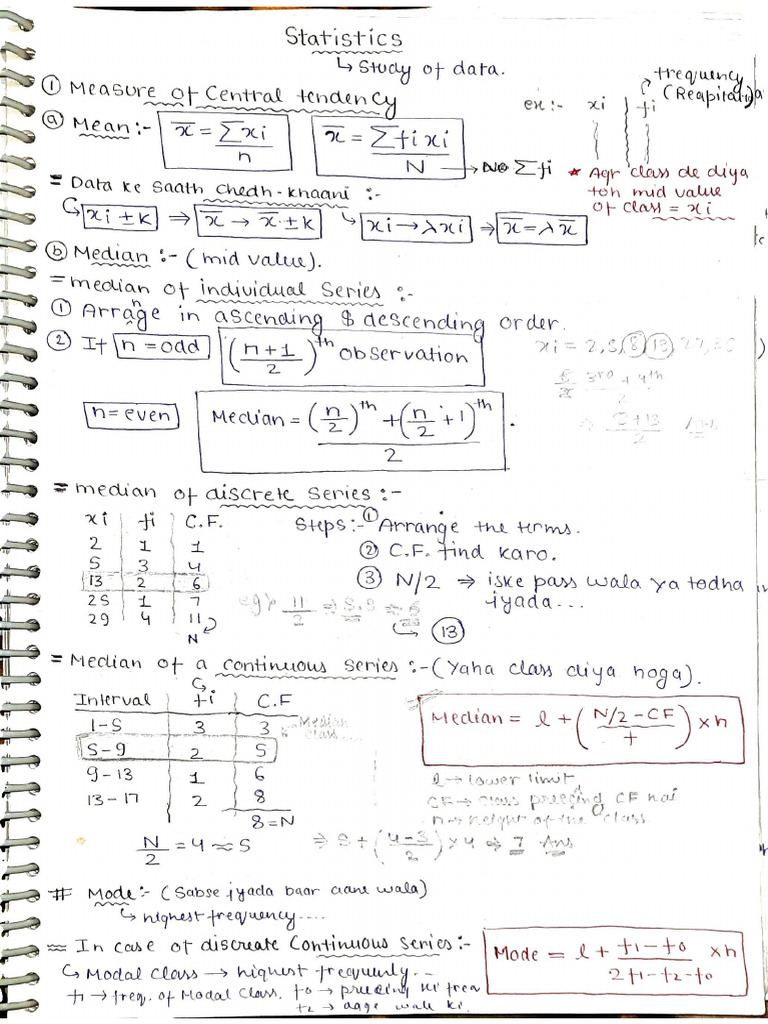 Statistics
↳ Study of data.
① Measure of Central tendency
ex:- xi | fi
↱ frequency
ⓐ Mean :- x̄ = Σxi / n    x̄ = Σfixi / N → Σfi
* Agr class de diya
toh mid value
of class = xi
= Data ke Saath Chedh-khaani :-
↳ xi ± k ⇒ x̄ → x̄ ± k   ↳ xi → λxi ⇒ x̄ = λx̄
ⓑ Median :- (mid value).
= median of individual Series :-
① Arrange in ascending $ descending order.
② If n = odd (n+1 / 2)th observation
xi = 2, 5, 8, 13, 27, 30
3rd + 4th / 2
n = even Median = ((n/2)th + (n/2 + 1)th) / 2 .
⇒ 8+13 / 2
= median of discrete Series :-
xi | fi | C.F.
2 | 1 | 1
5 | 3 | 4
13 | 2 | 6
25 | 1 | 7
29 | 4 | 11
N
Steps :- ① Arrange the terms.
② C.F. find karo.
③ N/2 → iske pass wala ya todha
jyada...
eg> 11/2 ⇒ 5.5
↳ 13
= Median of a continuous series :- (Yaha class diya hoga).
Interval | fi | C.F
1-5 | 3 | 3
Median class...
5-9 | 2 | 5
9-13 | 1 | 6
13-17 | 2 | 8
8 = N
Median = l + (N/2 - CF / f) × h
l → lower limit
CF → class preecing CF hai
h → height of the class.
N/2 = 4 ≈ 5
⇒ 5 + (4-3 / 2) × 4 ⇒ 7 Ans
# Mode :- (Sabse jyada baar aane wala)
↳ highest frequency....
≈ In case of discreate Continuous Series :-
Mode = l + f1 - f0 / 2f1 - f2 - f0 × h
↳ Modal Class → highest frequenly...
f1 → freq. of Modal Class. f0 → preecing ki freq
f2 → aage wale ki.